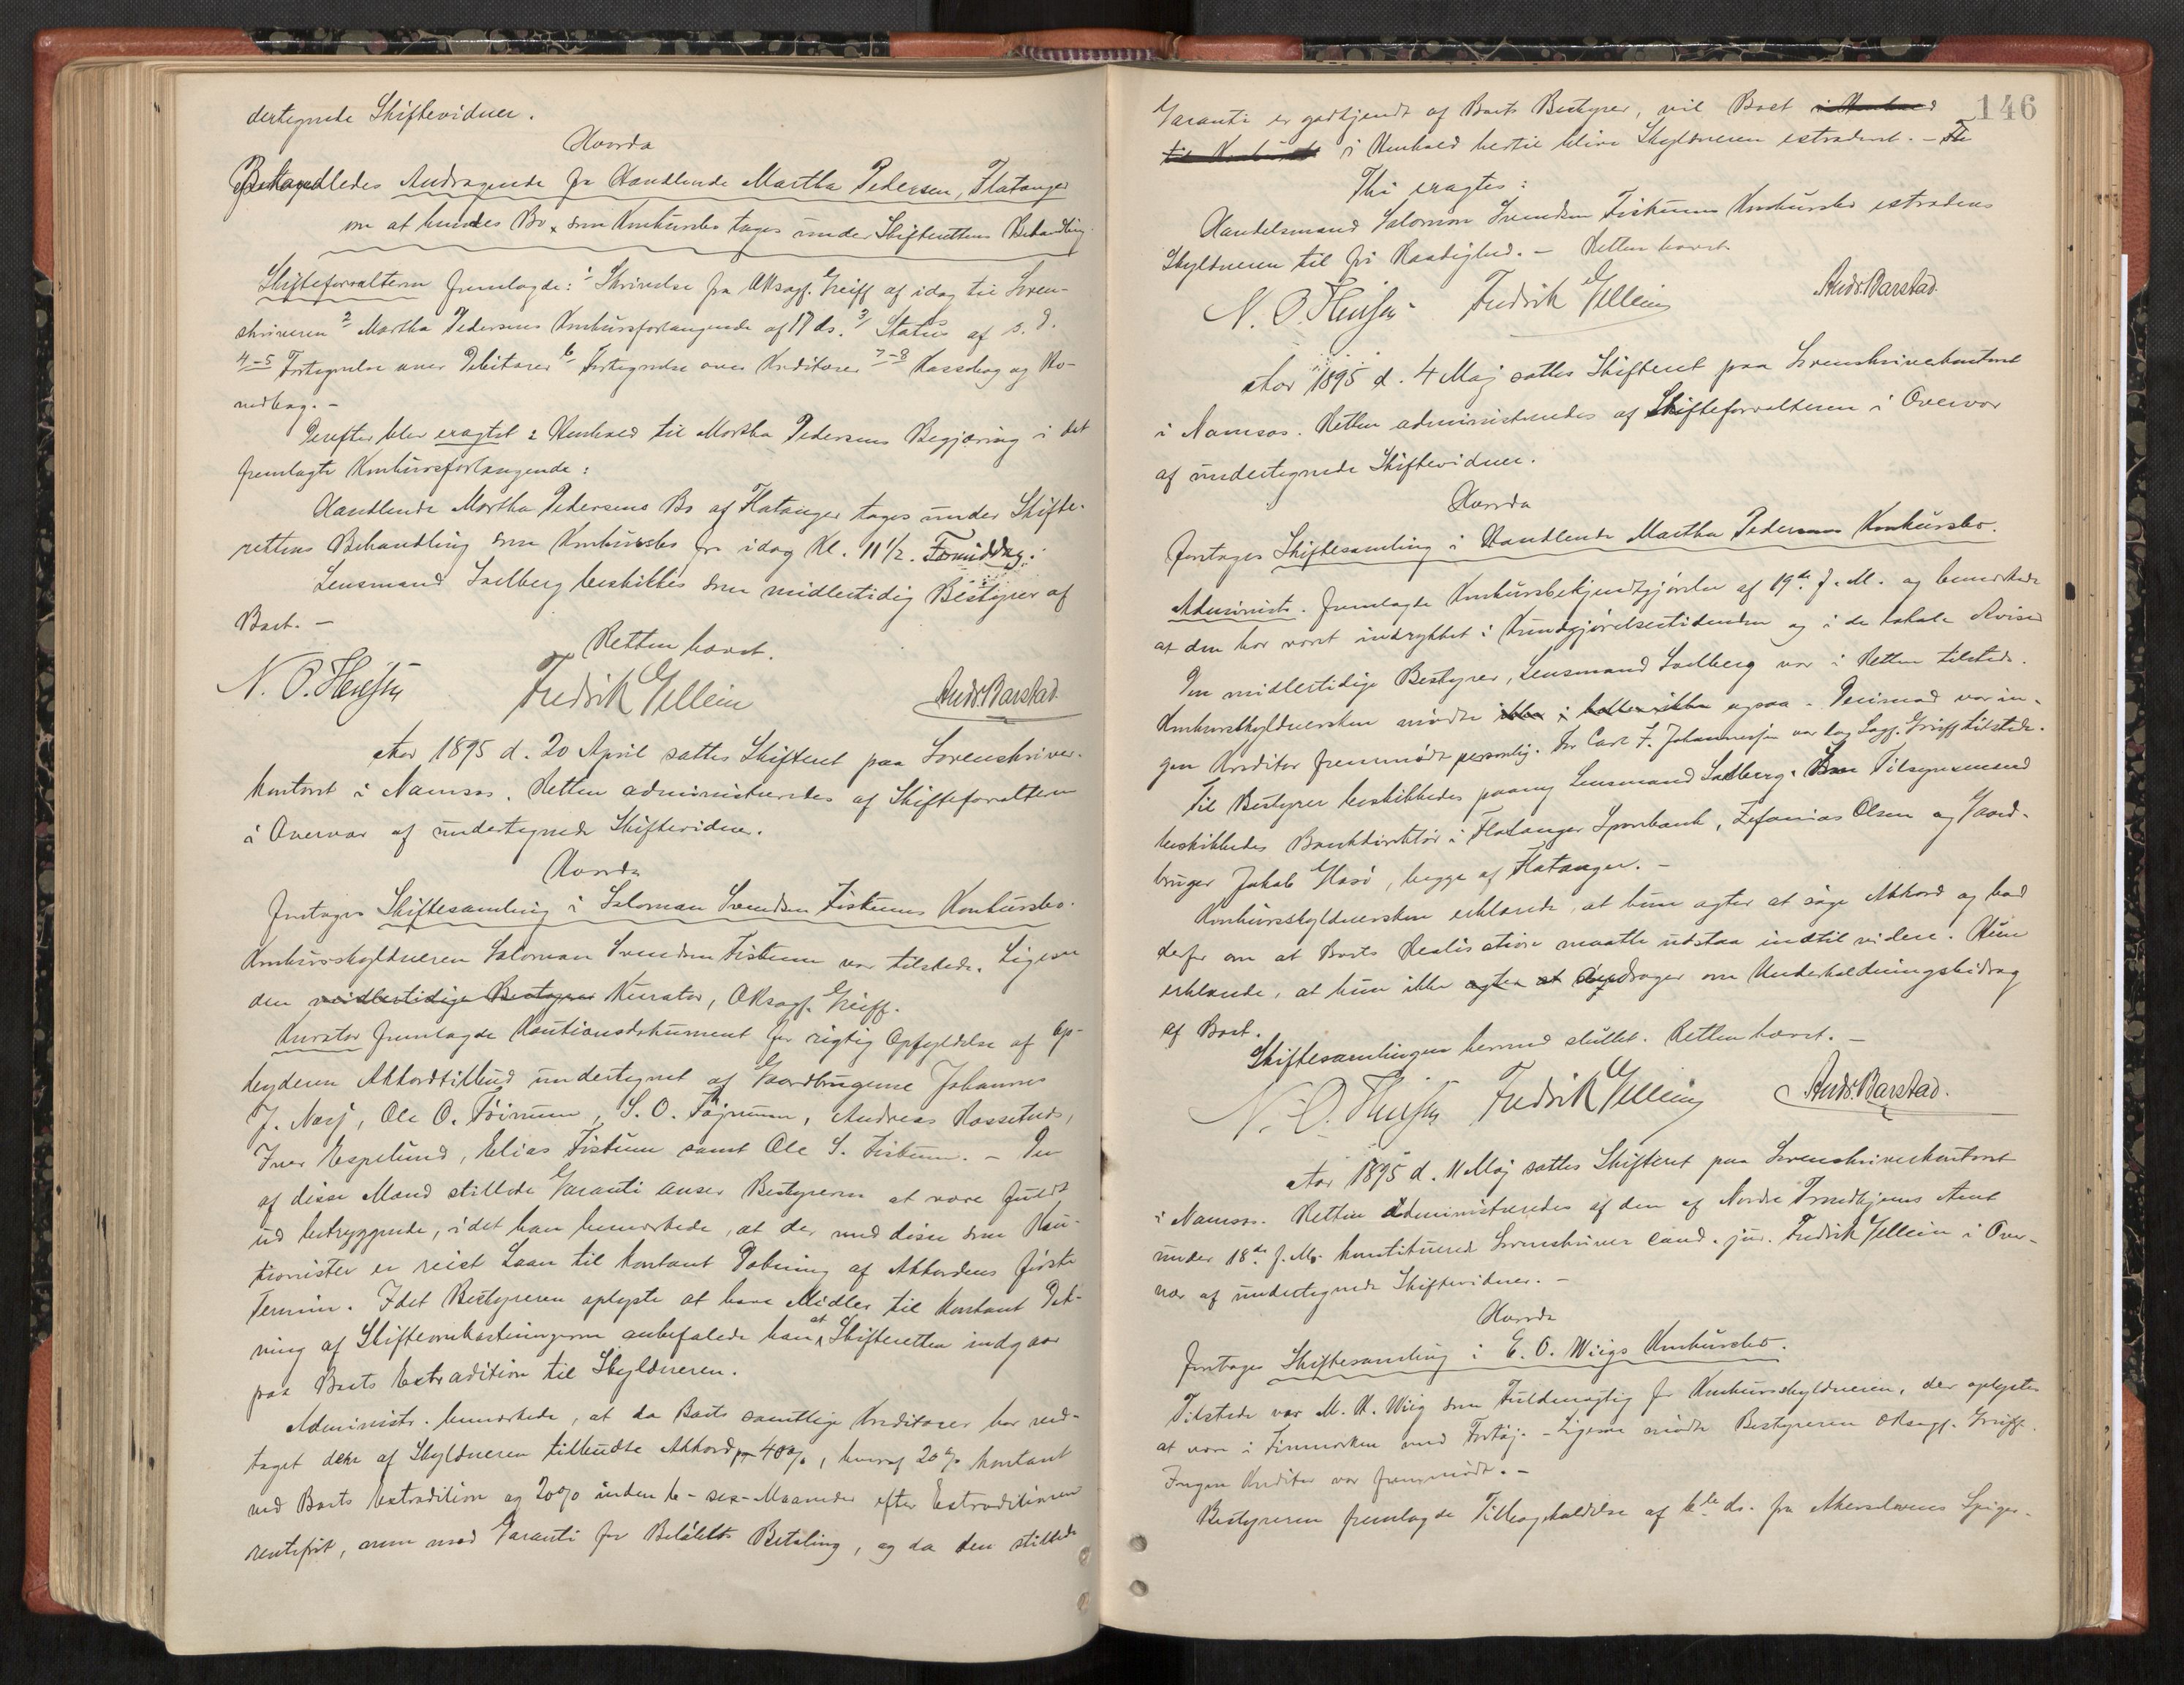 dertegnede Skiftevidner.
Hvorda
Behandledes Andragende fra Handlende Martha Pedersen, Flatanger
om at hendes Bo som Konkursbo tages under Skifterettens Behandling.
Skifteforvalteren fremlagde: 1 Skrivelse fra OKsagf. Greiff af idag til Soren-
skriveren 2 Martha Pedersens Konkursforlangende af 17 ds. 3/ Status af s. d.
4-5 Fortegnelse over Debitorer 6 Fortegnelse over Kreditorer 7-8 Kassebog og Ho-
vedbog. -
Derefter blev eragtet i Henhold til Martha Pedersens Begjæring i det
fremlagte Konkursforlangende:
Handlende Martha Pedersens Bo af Flatanger tages under Skifte-
rettens Behandling som Konkursbo fra idag Kl. 11 1/2. Formiddag.
Lensmand Solberg beskikkes som midlertidig Bestyrer af
Boet. -
Retten hævet.
Fredrik Gellein
Andr. Barstad.
Aar 1895 d. 20 April sattes Skifteret paa Sorenskriver-
kontoret i Namsos. Retten administreredes af Skifteforvalteren
i Overvær af undertegnede Skiftevidner.
Hvorda
foretages Skiftesamling i Salomon Svendsen Fiskums Konkursbo.
Konkursskyldneren Salomon Svendsen Fiskum var tilstede. Ligesaa
den midlertidige Bestyrer Kurator, OKsagf. Greiff.
Kurator fremlagde Kautionsdokument for rigtig Opfyldelse af Op-
byderen Akkordtilbud undertegnet af Gaardbrugerne Johannes
J. , Ole O. , S. O. , Andreas ,
Iver Espelund, Elias Fiskum samt Ole S. Fiskum. - Den
af disse Mænd stillede Garanti anser Bestyreren at være fuldt
ud betryggende, idet han bemærkede, at der med disse som Kau-
tionister er reist Laan til kontant Dækning af Akkordens første
Termin. Idet Bestyreren oplyste at have Midler til kontant Dæk-
ning af Skifteomkostningerne anbefalede han at Skifteretten indgaar
paa Boets Extradition til Skyldneren.
Administr. bemærkede, at da Boets samtlige Kreditorer har ved-
taget den af Skyldneren tilbudte Akkord 40%, hvoraf 20% kontant
ved Boets Extradition og 20% inden 6 - sex - Maaneder efter Extraditionen
rentefrit, men mod Garanti for Beløbets Betaling, og da den stillede
146
Garanti er godkjendt af Boets Bestyrer, vil Boet i Henhold
til i Henhold hertil blive Skyldneren extraderet. -
Thi eragtes:
Handelsmand Salomon Svendsen Fiskums Konkursbo extraderes
Skyldneren til fri Raadighed. - Retten hævet
Fredrik Gellein
Andr. Barstad.
Aar 1895 d. 4 Maj sattes Skifteret paa Sorenskriverkontoret
i Namsos. Retten administreredes af Skifteforvalteren i Overvær
af undertegnede Skiftevidner.
Hvorda
foretages Skiftesamling i Handlende Martha Pedersens Konkursbo.
Administr. fremlagde Konkursbekjendtgjørelse af 19de f. M. og bemærkede
at den har været indrykket i Kundgjørelsestidenden og i de lokale Aviser
Den midlertidige Bestyrer, Lensmand Solberg var i Retten tilstede.
Konkursskyldnersken mødte ikke i ikke ogsaa. Derimod var in-
gen Kreditor fremmødt personlig. For Carl F. Johannesen var dog Sagf. Greiff tilstede.
Til Bestyrer beskikkedes paany Lensmand Solberg. Som Tilsynsmænd
beskikkedes Bankdirektør i Flatanger Sparebank, Zefanias Olsen og Gaard-
bruger Jakob , begge af Flatanger. -
Konkursskyldnersken erklærede, at hun agter at søge Akkord og bad
derfor om at Boets Realisation maatte udstaa indtil videre. Hun
erklærede, at hun ikke agter at andrager om Underholdningsbidrag
af Boet.
Skiftesamlingen hermed sluttet. Retten hævet. -
Fredrik Gellein
Andr. Barstad.
Aar 1895 d. 11 Maj sattes Skifteret paa Sorenskriverkontoret
i Namsos. Retten administreredes af den af Nordre Trondhjems Amt
under 18de f. M. konstituerede Sorenskriver cand. jur. Fredrik Gellein i Over-
vær af undertegnede Skiftevidner. -
Hvorda
foretages Skiftesamling i E. O. Wiigs Konkursbo.
Tilstede var M. H. Wiig som Fuldmægtig for Konkursskyldneren, der oplystes
at være i Finmarken med Fartøj. - Ligesaa mødte Bestyreren OKsagf. Greiff.
Ingen Kreditor var fremmødt. -
Bestyreren fremlagde Tilbageholdelse af 6te ds. fra Akerselvens Spiger-